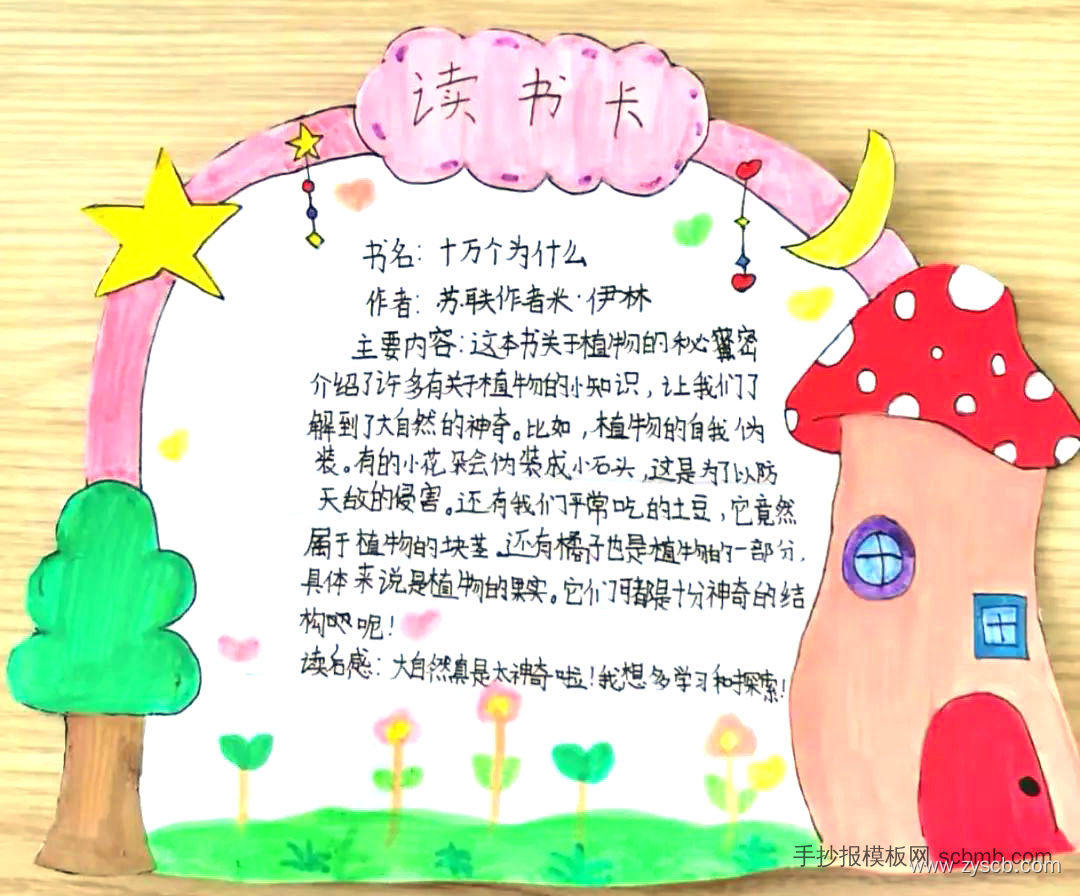 读书卡
书名：十万个为什么
作者：苏联作者米·伊林
主要内容：这本书关于植物的秘密
介绍了许多有关于植物的小知识，让我们了
解到了大自然的神奇。比如，植物的自我伪
装。有的小花朵会伪装成小石头，这是为了以防
天敌的侵害。还有我们平常吃的土豆，它竟然
属于植物的块茎。还有橘子也是植物的一部分，
具体来说是植物的果实。它们可都是十分神奇的结
构呢！
读后感：大自然真是太神奇啦！我想多学习和探索！
手抄报模板网 scbmb.com
www.zyscb.com